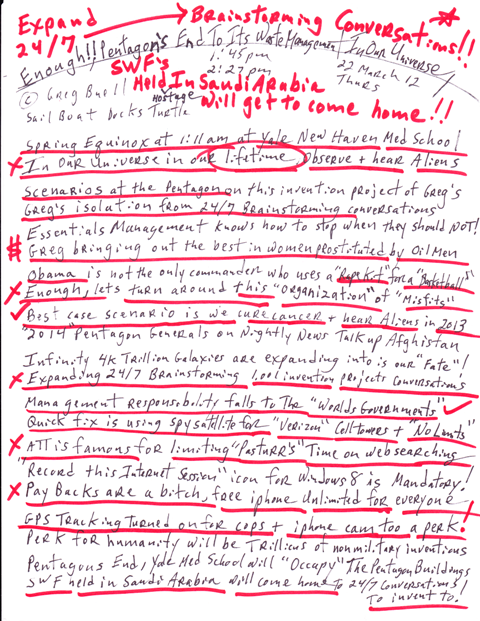 Expand 24/7 → Brainstorming Conversations!!
Enough!! Pentagon's End To Its Waste Management / In Our Universe
1:45pm
2:27pm
22 March 12
Thurs
SWF's Held In Saudi Arabia
Hostage
will get to come home!!
© Greg Buell
Sail Boat Docks Turtle
Spring Equinox at 1:11 am at Yale New Haven Med School
In our universe in our lifetime, observe + hear Aliens
Scenarios at the Pentagon on this invention project of Greg's
Greg's isolution from 24/7 Brainstorming conversations
Essentials Management knows how to stop when they should NOT!
Greg bringing out the best in women prostituted by Oil Men
Obama is not the only commander who uses a for a "Basketball"
Enough, lets turn around this "organization" of "Misfits"
Best case scenario is we cure cancer + hear Aliens in 2013
"2014" Pentagon Generals on Nightly News Talk up Afghistan
Infinity 4k Trillion Galaxies are expanding into is our "Fate"!
Expanding 24/7 Brainstorming 1,001 invention projects Conversations
Management responsibility falls to The "Worlds Governments"
Quick fix is using spy satellite for "Verizon" Cell towers + "No Limits"
ATT is famous for limiting "Pasturr's" Time on web searching
"Record this Internet Session" icon for Windows 8 is Mandatory!
Pay Backs are a bitch, free iphone Unlimited for everyone
GPS Tracking turned on for cops + iphone cam too a perk!
Perk for humanity will be Trillions of nonmilitary inventions
Pentagons End, Yale Med School will "Occupy" The Pentagon Buildings
SWF held in Saudi Arabia will come home To 24/7 Conversations!
To invent to.